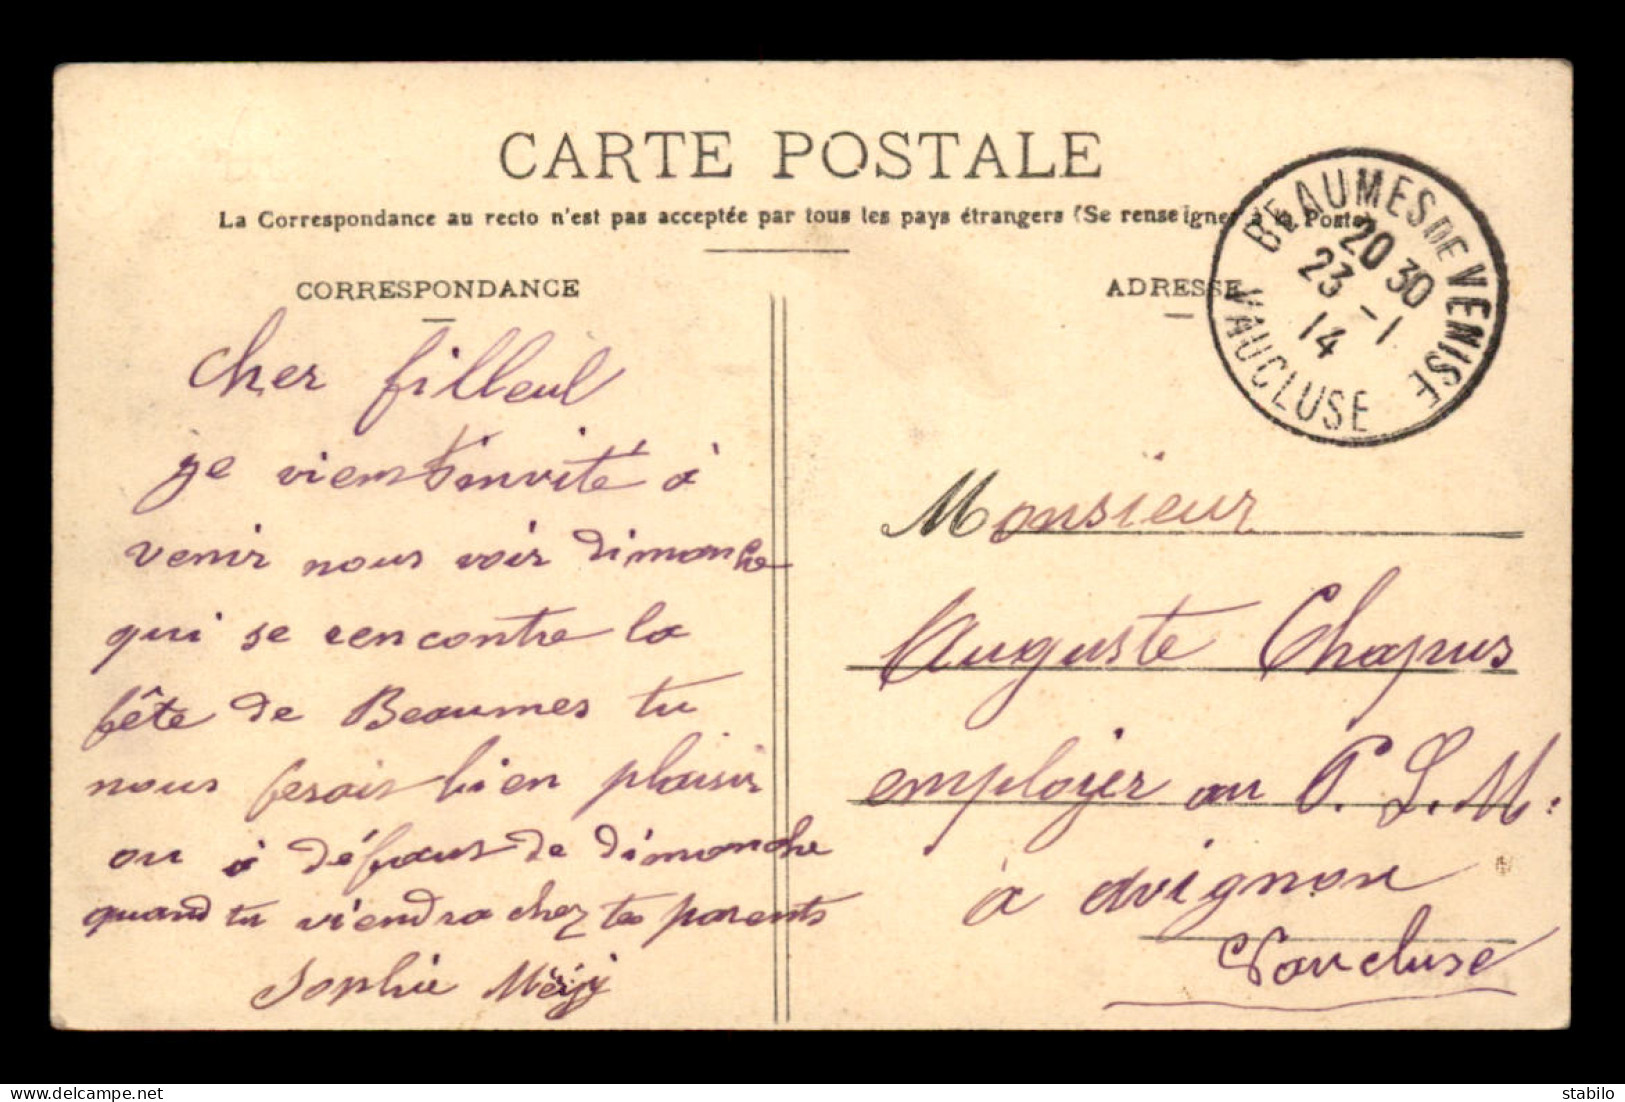 CARTE POSTALE
La Correspondance au recto n'est pas acceptée par tous les pays étrangers (Se renseigner à la Poste
CORRESPONDANCE
cher filleul
je viens t'invité à
venir nous voir dimanche
qui se rencontre la
fête de Beaumes tu
nous fesais bien plaisir
ou à défaus de dimanche
quand tu viendra chez tes parents
Sophie
ADRESSE
BEAUMES DE VENISE
20 30
23 -1
14
VAUCLUSE
Monsieur
Auguste Chapus
employer au P. L. M.
à avignon
Vaucluse
stabilo